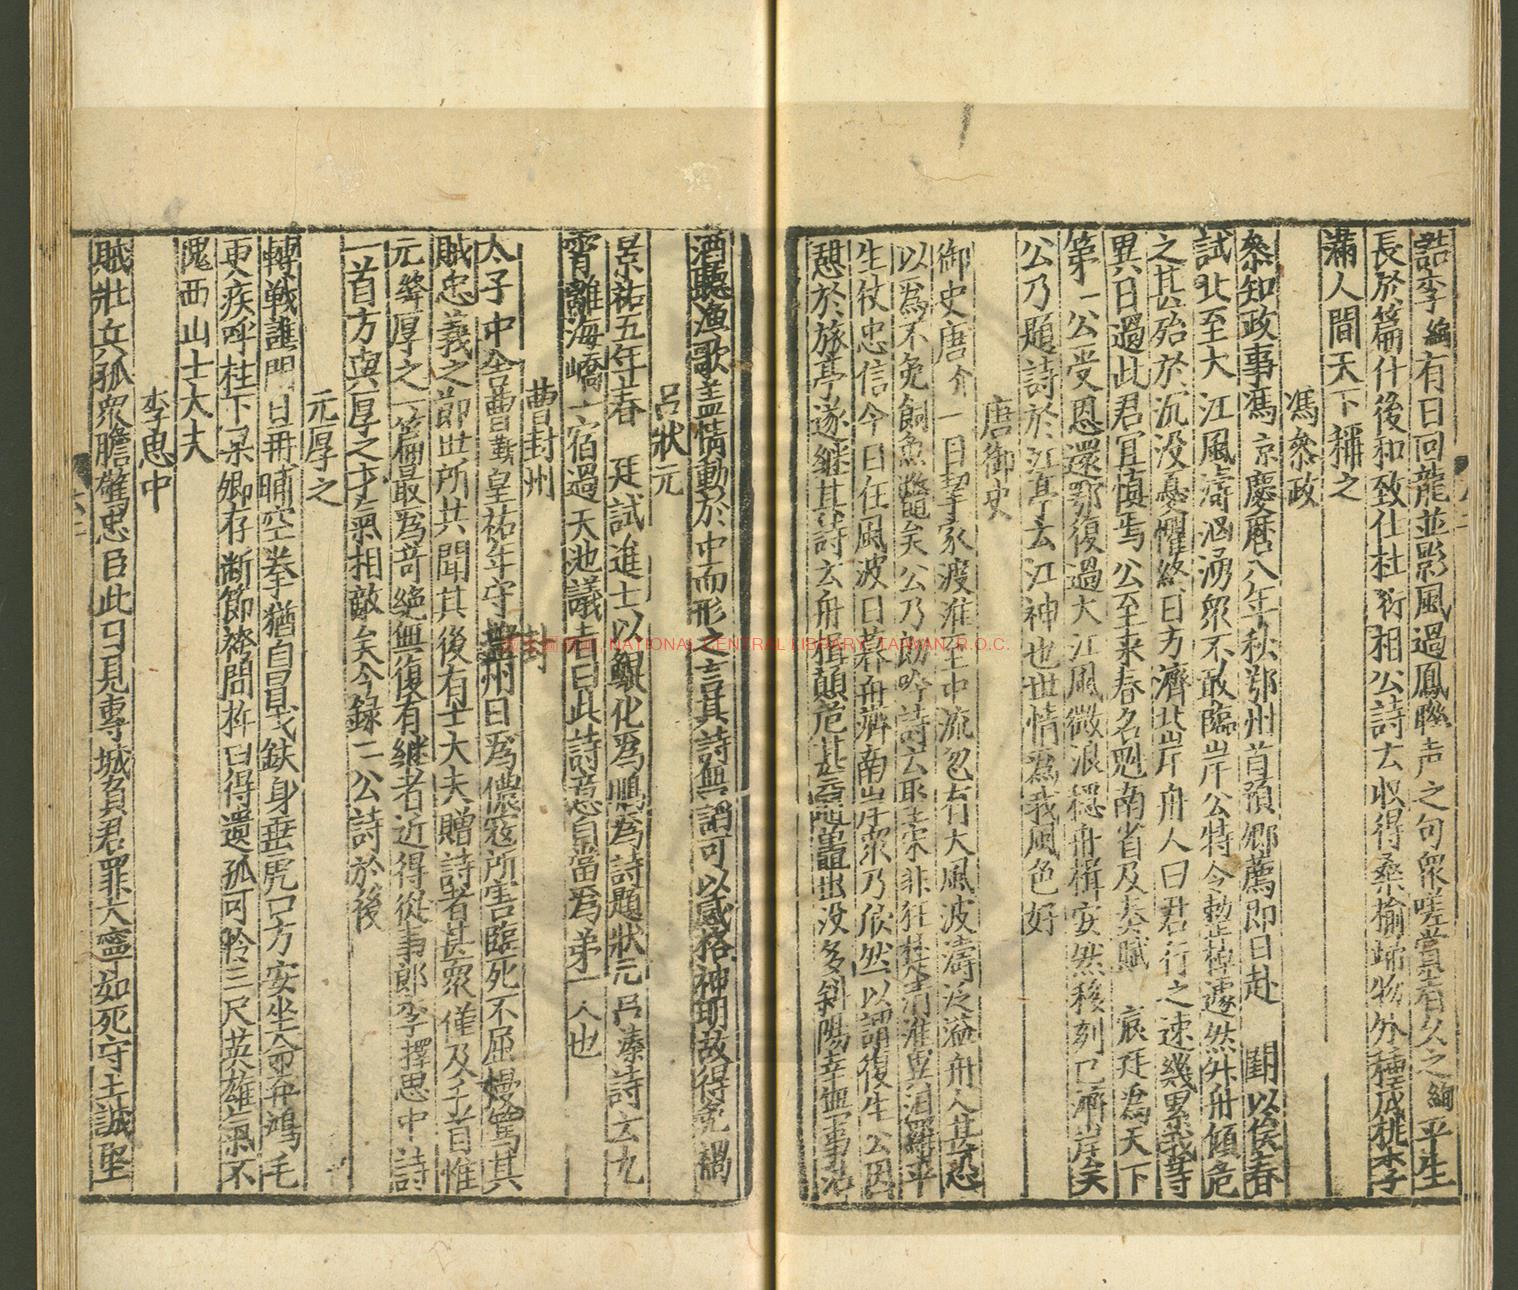 詰李絢有日回龍並影風過鳳聯声之句衆嗟賞者久之絢平生
長於篇什後和致仕杜衍相公詩云収得桑榆歸物外種成桃李
滿人間天下稱之
馮參政
參知政事馮京慶曆八年秋鄂州首預鄉薦即日赴 闈以俟春
試北至大江風濤洶湧衆不敢臨岸公特令整棹遽然外舟傾危
之甚殆於沉没憂懼終日方濟北岸舟人曰君行之速幾累我等
異日過此君宜慎焉公至来春名魁南省及奏賦 宸廷為天下
第一公受恩還鄂復過大江風微浪穩舟楫安然移刻已濟岸矣
公乃題詩於江亭云江神也世情為我風色好
唐御史
御史唐介一日挈家渡淮至中流忽有大風波濤泛溢舟人甚恐
以為不免飼魚鼈矣公乃朗吟詩云聖宋非狂楚清淮異汨羅平
生仗忠信今日任風波日暮舟濟南岸衆乃欣然以謂復生公因
憩於旅亭遂継其詩云舟楫顛危甚黿鼉出没多斜陽幸無事沽
酒聽漁歌盖情動於中而形之言其詩無謟可以感格神明故得免禍
呂狀元
景祐五年春 廷試進士以鯤化為鵬為詩題狀元呂溱詩云九
霄離海嶠一宿過天池議者曰此詩意自當為弟一人也
曹封州
太子中舍曹覲皇祐年守封州日爲儂寇所害臨死不屈嫚罵其
賊忠義之節世所共聞其後有士大夫贈詩者甚衆僅及千首惟
元絳厚之一篇最爲竒絶無復有継者近得從事郎李擇思中詩
一首方與厚之才氣相敵矣今録二公詩於後
元厚之
轉戰譙門日再晡空拳猶自冒戈鈇身垂虎口方安坐命弃鴻毛
更疾呼柱下杲卿存断節袴間杵臼得遺孤可怜三尺英雄氣不
愧西山士大夫
李思中
賊壯兵孤衆膽雄忠臣此日見專城負君罪大寧如死守土誠堅